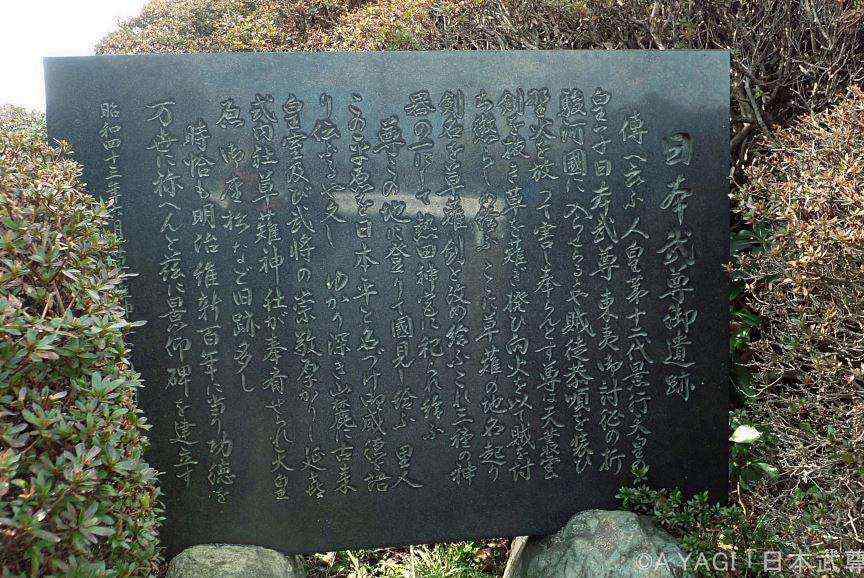 日本武尊御遺跡
傳へ云ふ人皇第十二代景行天皇の
皇子日本武尊東夷御討伐の折
駿河國に入らせらるゝや賊徒恭順を装ひ
野火を放つて害し奉らんとす尊は天叢雲
劍を抜き草を薙ぎ拂ひ向火を以て賊を討
ち滅らし給ふ ここに草薙の地名起り
劍名を草薙劍と改め給ふこれ三種の神
器の一にして熱田神宮に祀られ給ふ
尊この地に登りて國見し給ふ 里人
この平原を日本平と名づけ御威徳を語
り伝ふるや久し ゆかり深き山麓に古来
皇室及び武将の崇敬厚かりし延喜
式内社草薙神社が奉斎せられ天皇
原 御座松など旧跡多し
時恰も明治維新百年に当り功徳を
万世に称へんと茲に景仰碑を建立す
昭和四十三年六月
©A.YAGI「日本武尊